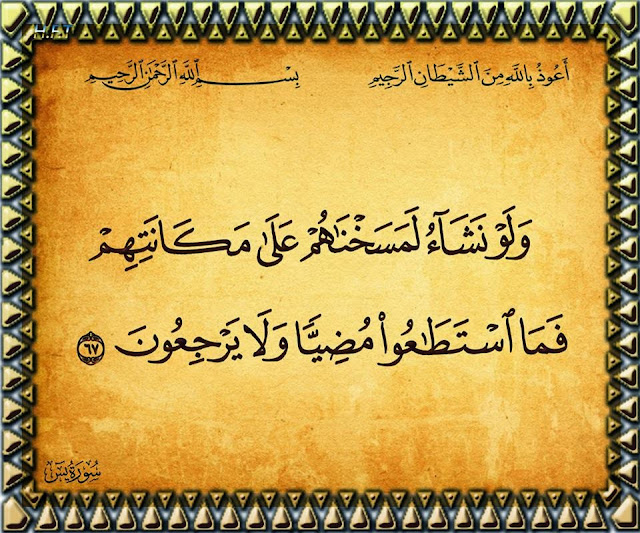 H.H٦
أَعُوذُ بِاللَّهِ مِنَ الشَّيْطَانِ الرَّجِيمِ بِسْمِ ٱللَّهِ ٱلرَّحْمَٰنِ ٱلرَّحِيمِ
وَلَوْ نَشَآءُ لَمَسَخْنَٰهُمْ عَلَىٰ مَكَانَتِهِمْ
فَمَا ٱسْتَطَٰعُوا۟ مُضِيًّا وَلَا يَرْجِعُونَ ٦٧
سُورَةُ يسٓ